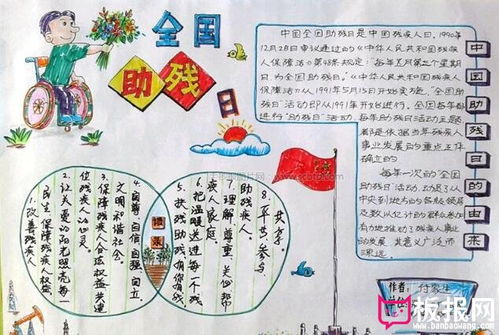 全国
助残
日
中国全国助残日是中国残疾人日,1990年
12月28日审议通过的《中华人民共和国残疾
人保障法》第48条规定:"每年五月第三个星期
日,为全国助残日。"《中华人民共和国残疾人
保障法》从1991年5月15日开始实施,"全国助
残日"活动即从1991年开始进行。全国每年都
进行"助残日"活动,每年助残日活动主题
都是依据当年残疾人
事业发展的重点工作
确立的
每年一次的"全国
助残日"活动,动员了从
中央到地方的各级领导
及数以亿计的群众参加
有力地推动了残疾人事业
的发展
中国助残日的由来
1、改善残疾人
民生,保障残疾人权益
2、让关爱的阳光照亮每一
位残疾人的心灵
3、保障残疾人合法权益共建
文明和谐社会
4、自尊自信自强自立
5、扶残助残
6、把温暖送进每一个残
疾人家庭
7、理解、尊重、关心、帮
助残疾人
8、平等、参与、
共享
作者:
板报网
www.banbaowang.com